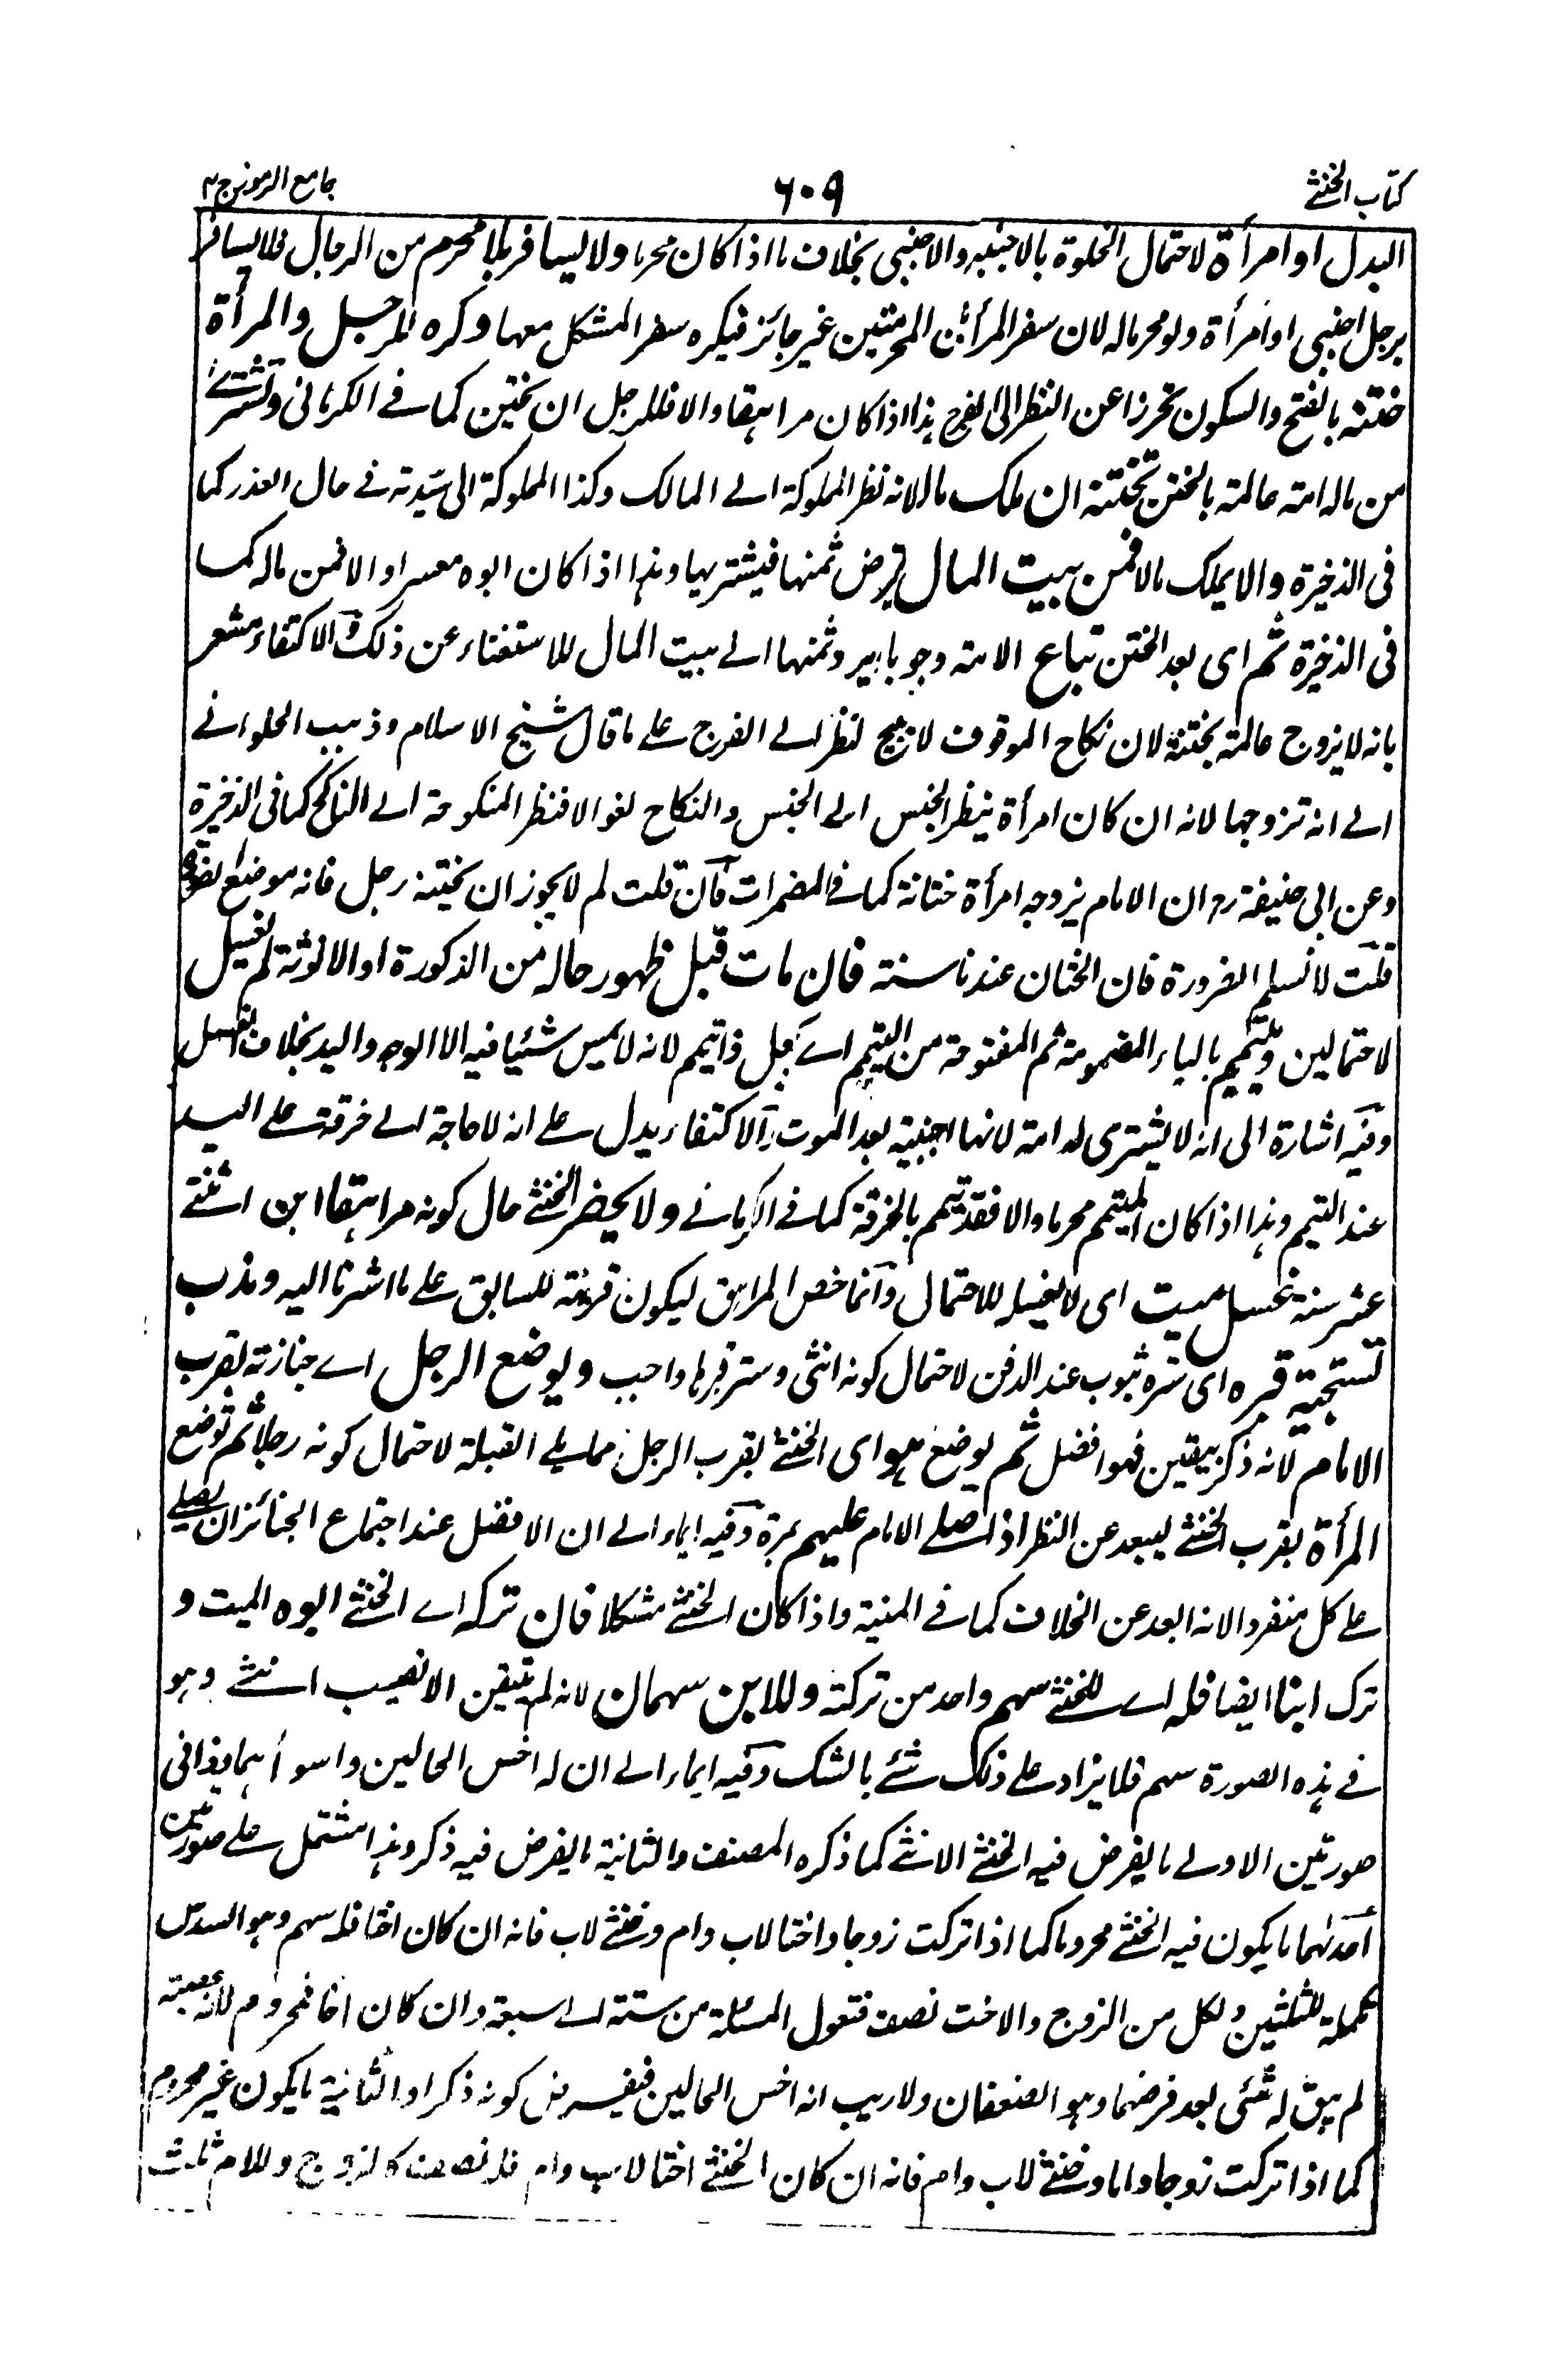 كتاب الخنثے
٦٠٩
جامع الرموز ج ٢
البدل او امرأة لاحتمال الخلوة بالاجنبيه والاجنبى بخلاف ما اذا كان محرما ولا يسافر بلا محرم من الرجال فلا يسافر
برجل اجنبى او امرأة ولو محرما له لان سفر المرأتين المحرمتين غير جائز فيكره سفر المشكل معها وكره للرجل والمرأة
ختنه بالفتح والسكون تحرزا عن النظر الى الفرج هذا اذا كان مراهقا والا فللرجل ان يختن كما فے الكرمانى وتشترے
من ماله امته عالمة بالختن تختنه ان ملك مالا لانه نظر المملوكة الے المالك وكذا المملوكة الى سيدته فے حال العذر كما
فى الذخيرة والا يملك مالا فمن بيت المال يقرض ثمنها فيشتريها وهذا اذا كان ابوه معسرا والا فمن ماله كما
فى الذخيرة ثم اى بعد الختن تباع الامته وجوبا ويرد ثمنها الے بيت المال للاستغناء عن ذلك والاكتفاء مشعر
بانه لا يزوج عالمة بختنه لان نكاح الموقوف لا يبيح النظر الے الفرج علے ما قال شيخ الاسلام وذهب الحلوانے
الے انه تزوجها لانه ان كان امرأة ينظر الجنس الے الجنس والنكاح لغو والا فنظر المنكوحة الے الناكح كما فى الذخيرة
وعن ابى حنيفة رح ان الامام يزوجه امرأة ختانة كما فے المضمرات فان قلت لم لا يجوز ان يختنه رجل فانه موضع
قلت لا نسلم الضرورة فان الختان عندنا سنة فان مات قبل ظهور حاله من الذكورة او الانوثة لم يغسل
لاحتمالين ويتيمم بالياء المضمومة ثم المفتوحة من التيمم اے يجعل ذا تيمم لانه لا يمس شيئا فيه الا الوجه واليد بخلاف الغسل
وفيه اشارة الى انه لا يشترى له امة لانها اجنبية بعد الموت والاكتفاء يدل علے انه لا حاجة الے خرقة علے اليد
عند التيمم وهذا اذا كان الميمم محرما والا فقد تيمم بالخرقة كما فے الكرمانے ولا يحضر الخنثے حال كونه مراهقا ابن اثنتے
عشر سنة غسل ميت اى لا يغسله للاحتمال وانما خص المراهق ليكون قرينة للسابق علے ما اشرنا اليه وندب
تسجية قبره اى ستره بثوب عند الدفن لاحتمال كونه انثى وستر قبرها واجب ويوضع الرجل اے جنازته بقرب
الامام لانه ذكر بيقين فهو افضل ثم يوضع هو اى الخنثے بقرب الرجل مما يلے القبلة لاحتمال كونه رجلا ثم توضع
المرأة بقرب الخنثے ليبعد عن النظر اذا صلے الامام عليهم مرة وفيه ايماء الے ان الافضل عند اجتماع الجنائز ان يصلے
علے كل منفردا لانه ابعد عن الخلاف كما فے المنية واذا كان الخنثے مشكلا فان تركه اے الخنثے ابوه الميت و
ترك ابنا ايضا فله اے للخنثے سهم واحد من تركته وللابن سهمان لانه لم يتيقن الا نصيب انثے وهو
فے هذه الصورة سهم فلا يزاد علے ذلك شئے بالشك وفيه ايماء الے ان له اخس الحالين واسوأهما وذا فى
صورتين الاولے ما يفرض فيه الخنثے الانثے كما ذكره المصنف والثانية ما يفرض فيه ذكر وهذا مشتمل علے صورتين
احدٰهما ما يكون فيه الخنثے محروما كما اذا تركت زوجا واختا لاب وام وخنثے لاب فانه ان كان اختا فله سهم وهو السدس
تكملة للثلثين ولكل من الزوج والاخت نصف فتعول المسئلة من ستة الے سبعة وان كان اخا فمحروم لانه عصبة
لم يبق له شئى بعد فرضهما وهو النصفان ولا ريب انه اخس الحالين فيفرض كونه ذكرا والثانية ما يكون غير محروم
كما اذا تركت زوجا واما وخنثے لاب وام فانه ان كان الخنثے اختا لاب وام فله نصف كالزوج وللام ثلث